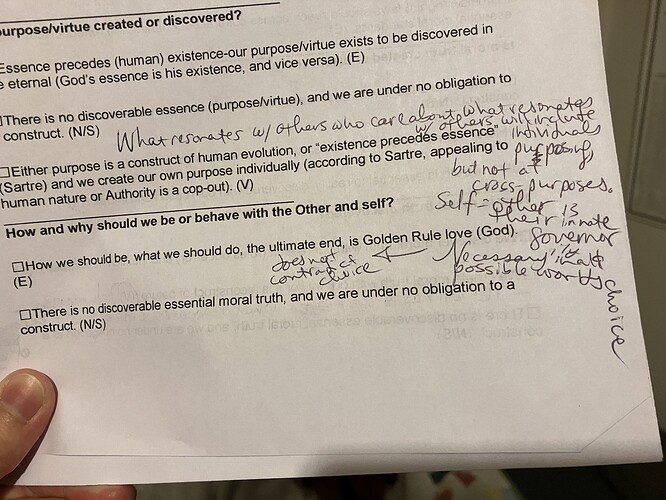 purpose/virtue created or discovered?
Essence precedes (human) existence-our purpose/virtue exists to be discovered in
e eternal (God's essence is his existence, and vice versa). (E)
□There is no discoverable essence (purpose/virtue), and we are under no obligation to
construct. (N/S)
What resonates w/ others who care about what resonates
w/ others will include
individuals
purposing,
but not at
cross-purposes.
Self=other is
their innate
governor
□Either purpose is a construct of human evolution, or "existence precedes essence"
(Sartre) and we create our own purpose individually (according to Sartre, appealing to
human nature or Authority is a cop-out). (V)
How and why should we be or behave with the Other and self?
□How we should be, what we should do, the ultimate end, is Golden Rule love (God).
(E)
does not
contradict
choice
Necessary in all
possible worlds
choice
□There is no discoverable essential moral truth, and we are under no obligation to a
construct. (N/S)